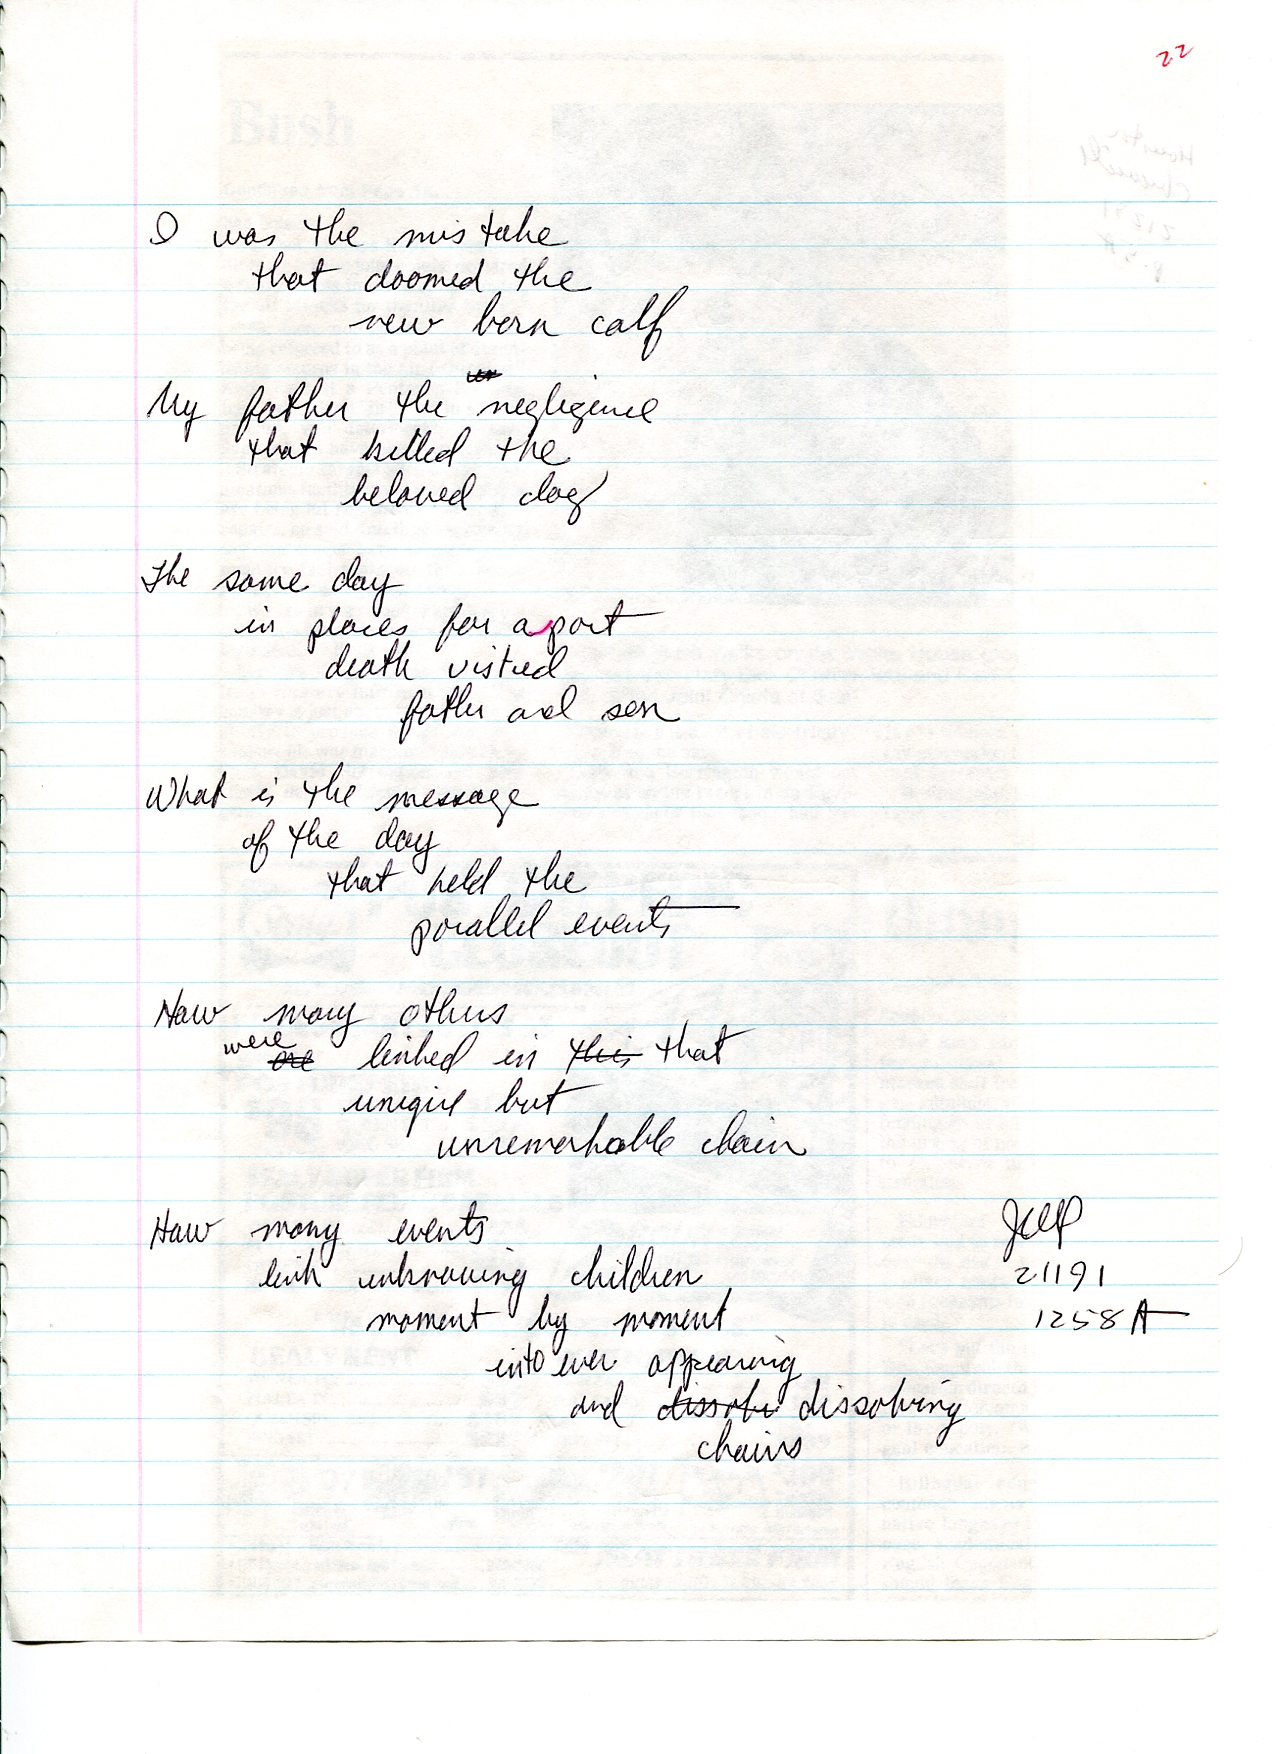 22
Bush
I was the mistake
that doomed the
new born calf
My father the negligence
that killed the
beloved dog
The same day
in places far apart
death visited
father and son
What is the message
of the day
that held the
parallel events
How many others
were are linked in this that
unique but
unremarkable chain
How many events
link unknowing children
moment by moment
into ever appearing
and dissolv dissolving
chains
21191
1258 A